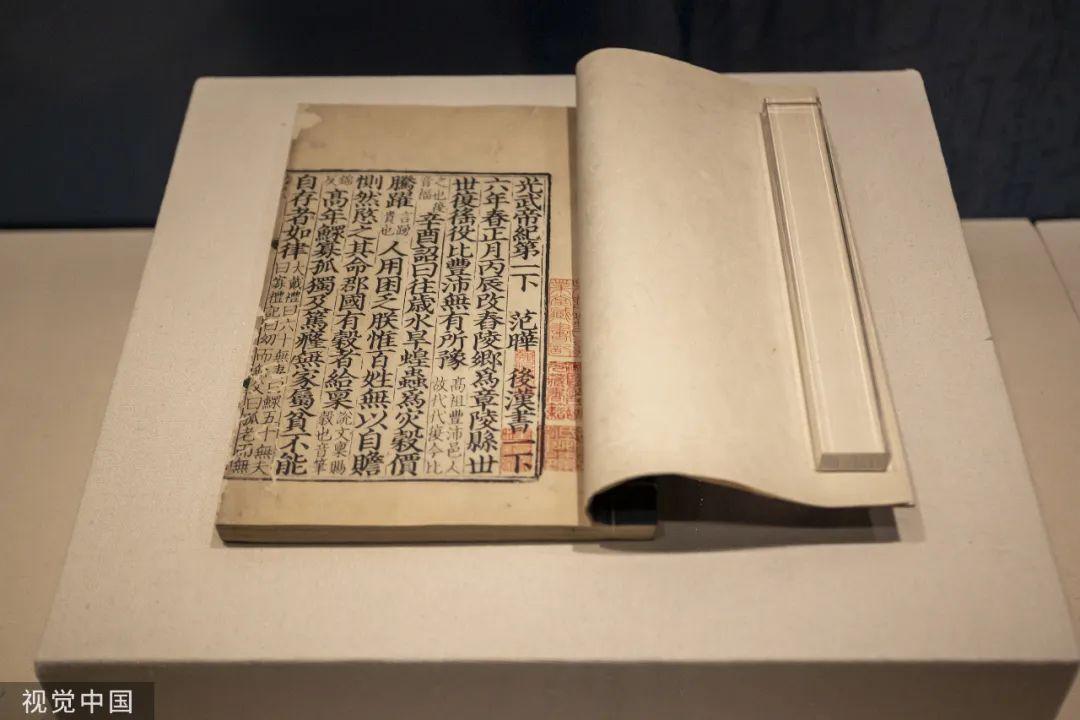 光武帝紀第一下 范曄 後漢書一下
六年春正月丙辰改舂陵鄉爲章陵縣世
世復徭役比豐沛無有所豫 高祖豐沛邑人故代代復今比
之也復音福 辛酉詔曰往歲水旱蝗蟲爲災穀價
騰躍 言踴貴也 人用困乏朕惟百姓無以自贍
惻然愍之其命郡國有穀者給稟 說文稟賜穀也音筆
錦反 高年鰥寡孤獨及篤癃無家屬貧不能
自存者如律 大戴禮曰六十無妻曰鰥五十無夫曰寡禮記曰幼而無父曰孤老而無
視覺中国